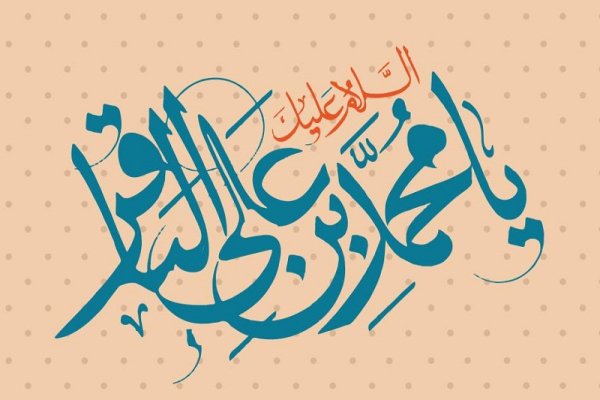 السَّلامُ عَلَیكَ
یا مُحَمَّدِ بنِ عَلیِ الباقر